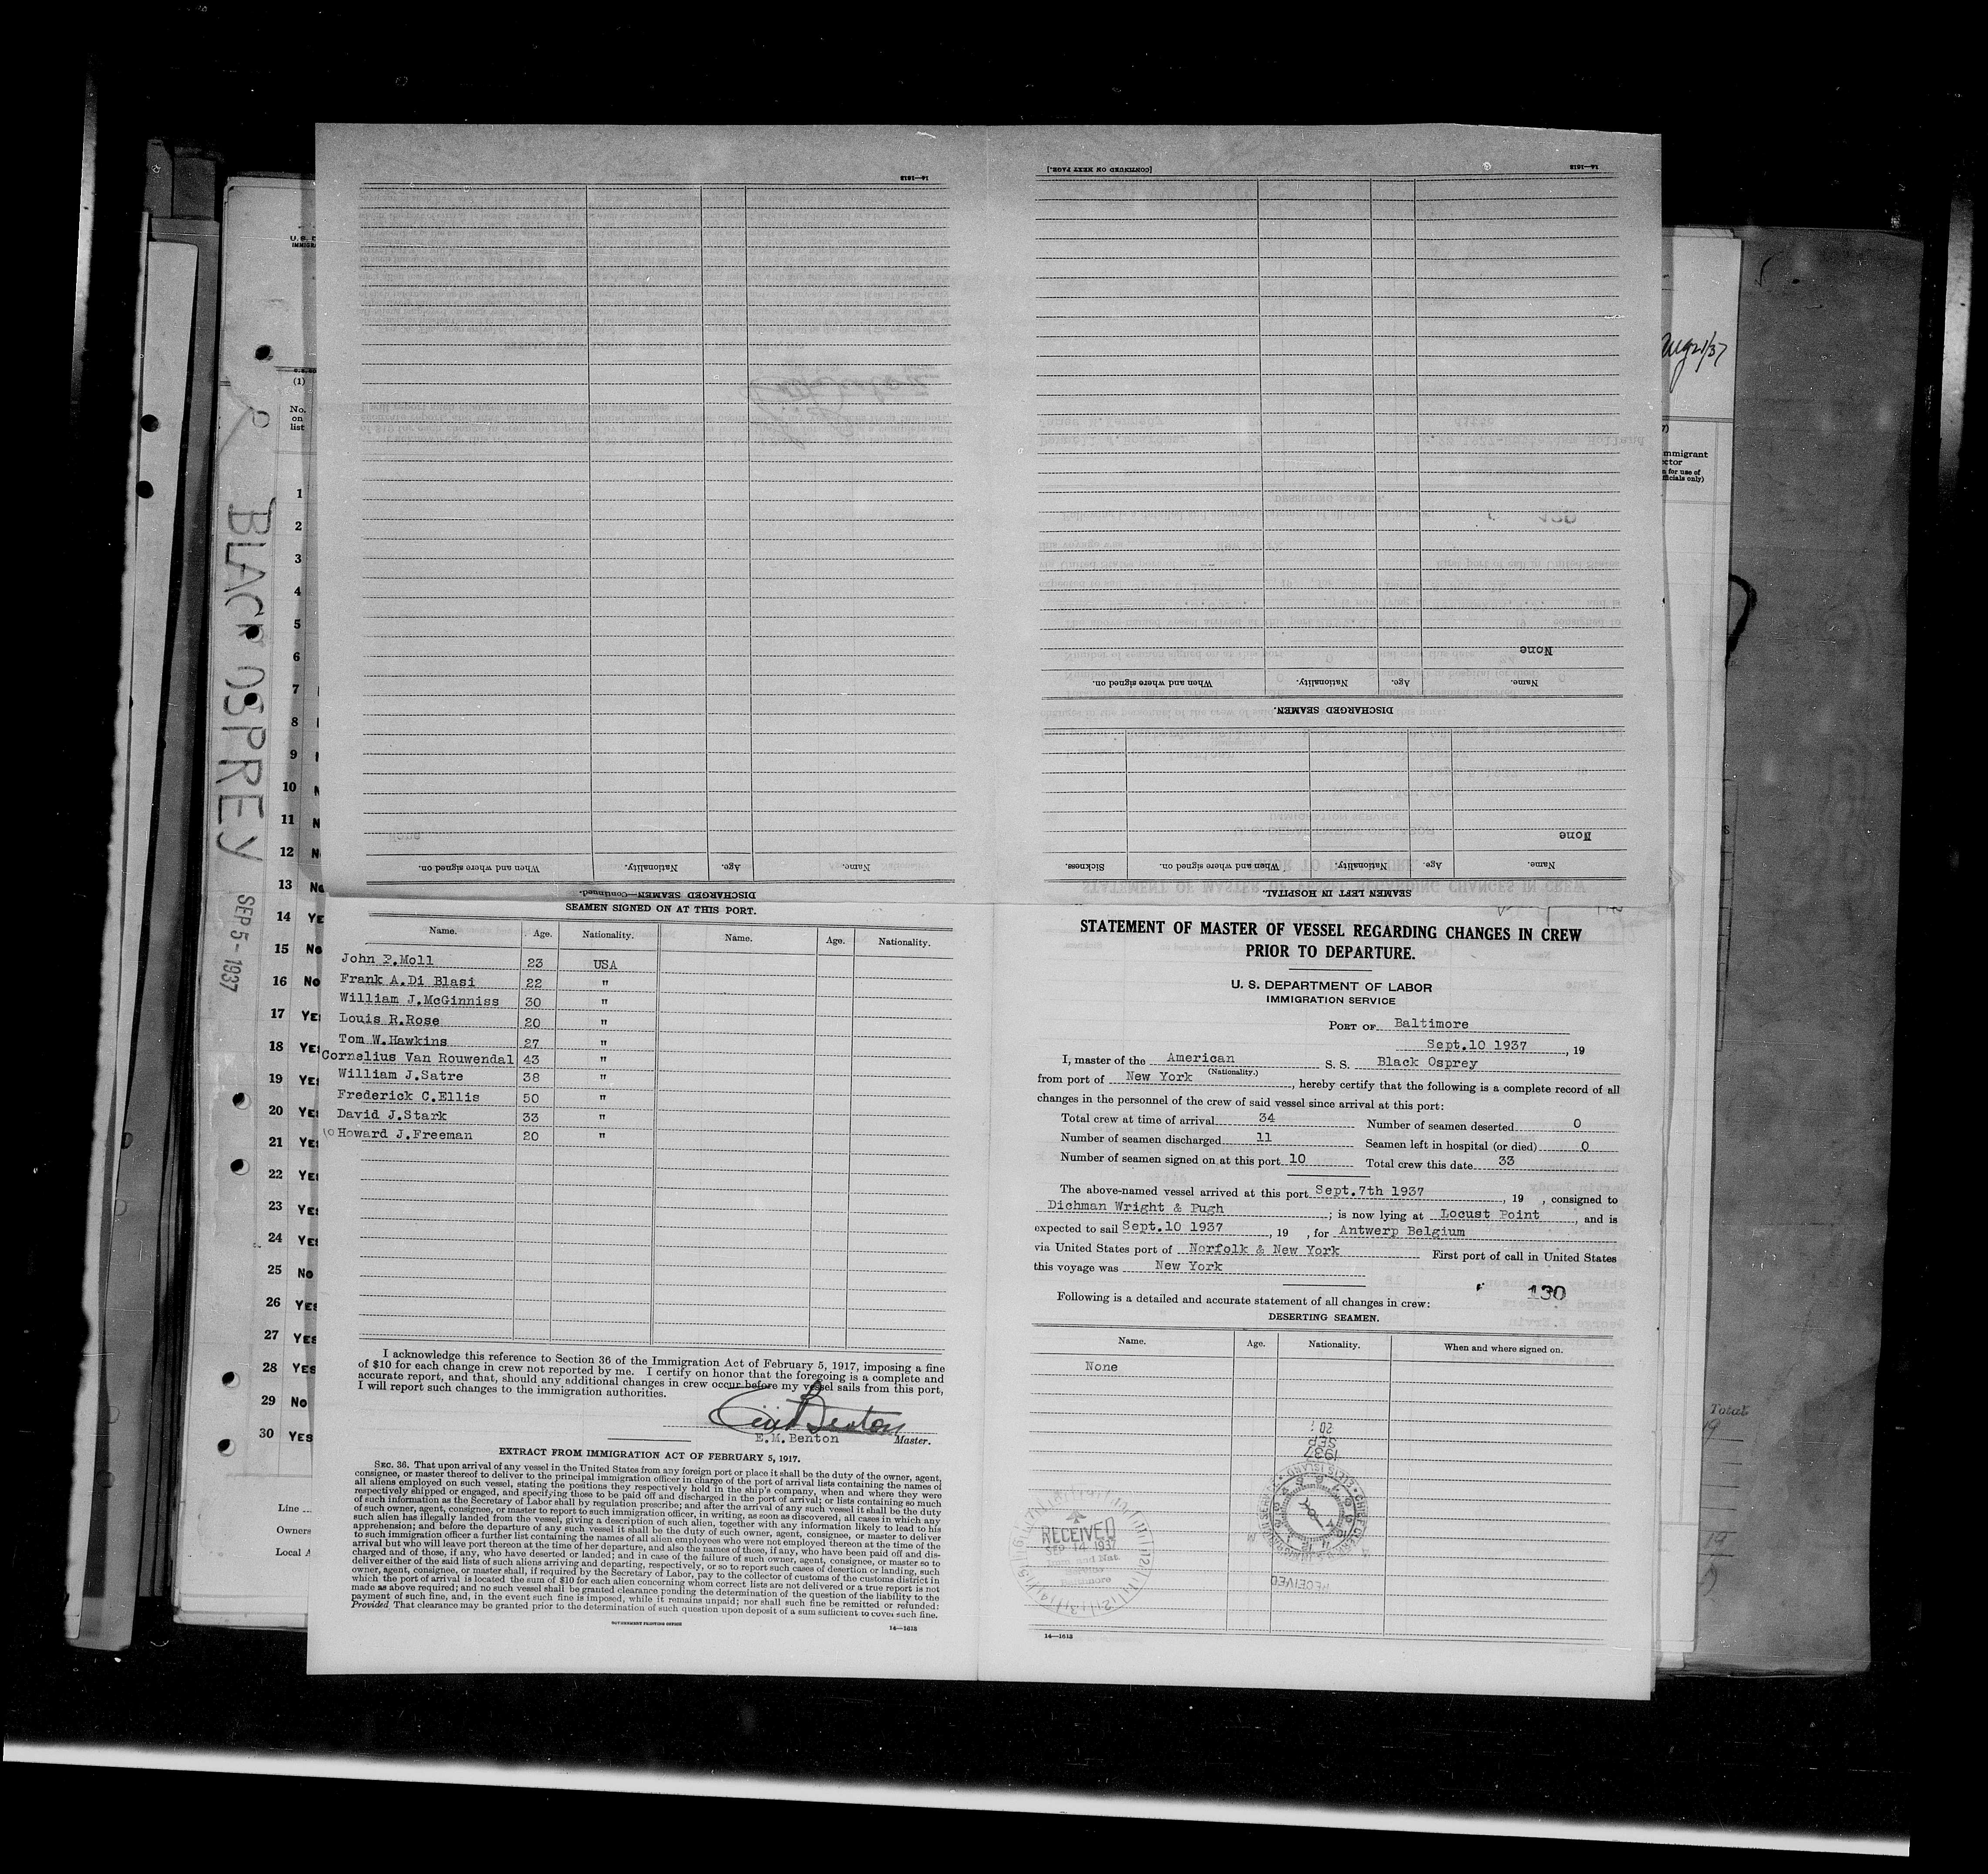 14—1613
[CONTINUED ON NEXT PAGE.]
14—1613
None
Name.
Age.
Nationality.
When and where signed on.
DISCHARGED SEAMEN.
None
Name.
Age.
Nationality.
When and where signed on.
Sickness.
SEAMEN LEFT IN HOSPITAL.
Name.
Age.
Nationality.
When and where signed on.
DISCHARGED SEAMEN—Continued.
BLACK OSPREY
SEP 5-1937
Aug 21/37
(1)
No.
on
list
1
2
3
4
5
6
7
8
9
10
11
12
13 No
14 YE
15 No
16 No
17 YES
18 YES
19 YES
20 YES
21 YES
22 YES
23 YES
24 YES
25 No
26 YES
27 YES
28 YES
29 No
30 YES
Line
Owners
Local A
mmigrant
ctor
for use of
ficials only)
Total
SEAMEN SIGNED ON AT THIS PORT.
Name. Age. Nationality. Name. Age. Nationality.
John P.Moll 23 USA
Frank A.Di Blasi 22 "
William J.McGinniss 30 "
Louis R.Rose 20 "
Tom W.Hawkins 27 "
Cornelius Van Rouwendal 43 "
William J.Satre 38 "
Frederick C.Ellis 50 "
David J.Stark 33 "
10 Howard J.Freeman 20 "
I acknowledge this reference to Section 36 of the Immigration Act of February 5, 1917, imposing a fine
of $10 for each change in crew not reported by me. I certify on honor that the foregoing is a complete and
accurate report, and that, should any additional changes in crew occur before my vessel sails from this port,
I will report such changes to the immigration authorities.
E.M.Benton Master.
EXTRACT FROM IMMIGRATION ACT OF FEBRUARY 5, 1917.
SEC. 36. That upon arrival of any vessel in the United States from any foreign port or place it shall be the duty of the owner, agent,
consignee, or master thereof to deliver to the principal immigration officer in charge of the port of arrival lists containing the names of
all aliens employed on such vessel, stating the positions they respectively hold in the ship's company, when and where they were
respectively shipped or engaged, and specifying those to be paid off and discharged in the port of arrival; or lists containing so much
of such information as the Secretary of Labor shall by regulation prescribe; and after the arrival of any such vessel it shall be the duty
of such owner, agent, consignee, or master to report to such immigration officer, in writing, as soon as discovered, all cases in which any
such alien has illegally landed from the vessel, giving a description of such alien, together with any information likely to lead to his
apprehension; and before the departure of any such vessel it shall be the duty of such owner, agent, consignee, or master to deliver
to such immigration officer a further list containing the names of all alien employees who were not employed thereon at the time of the
arrival but who will leave port thereon at the time of her departure, and also the names of those, if any, who have been paid off and dis-
charged and of those, if any, who have deserted or landed; and in case of the failure of such owner, agent, consignee, or master so to
deliver either of the said lists of such aliens arriving and departing, respectively, or so to report such cases of desertion or landing, such
owner, agent, consignee, or master shall, if required by the Secretary of Labor, pay to the collector of customs of the customs district in
which the port of arrival is located the sum of $10 for each alien concerning whom correct lists are not delivered or a true report is not
made as above required; and no such vessel shall be granted clearance pending the determination of the question of the liability to the
payment of such fine, and, in the event such fine is imposed, while it remains unpaid; nor shall such fine be remitted or refunded:
Provided That clearance may be granted prior to the determination of such question upon deposit of a sum sufficient to cover such fine.
GOVERNMENT PRINTING OFFICE
14—1613
STATEMENT OF MASTER OF VESSEL REGARDING CHANGES IN CREW
PRIOR TO DEPARTURE.
U. S. DEPARTMENT OF LABOR
IMMIGRATION SERVICE
PORT OF Baltimore
Sept.10 1937, 19
I, master of the American S. S. Black Osprey
(Nationality.)
from port of New York, hereby certify that the following is a complete record of all
changes in the personnel of the crew of said vessel since arrival at this port:
Total crew at time of arrival 34 Number of seamen deserted 0
Number of seamen discharged 11 Seamen left in hospital (or died) 0
Number of seamen signed on at this port 10 Total crew this date 33
The above-named vessel arrived at this port Sept.7th 1937, 19 , consigned to
Dichman Wright & Pugh; is now lying at Locust Point, and is
expected to sail Sept.10 1937, 19 , for Antwerp Belgium
via United States port of Norfolk & New York First port of call in United States
this voyage was New York
130
Following is a detailed and accurate statement of all changes in crew:
DESERTING SEAMEN.
Name. Age. Nationality. When and where signed on.
None
1937
SEP
20
RECEIVED
RECEIVED
SEP 14 1937
Baltimore
14—1613